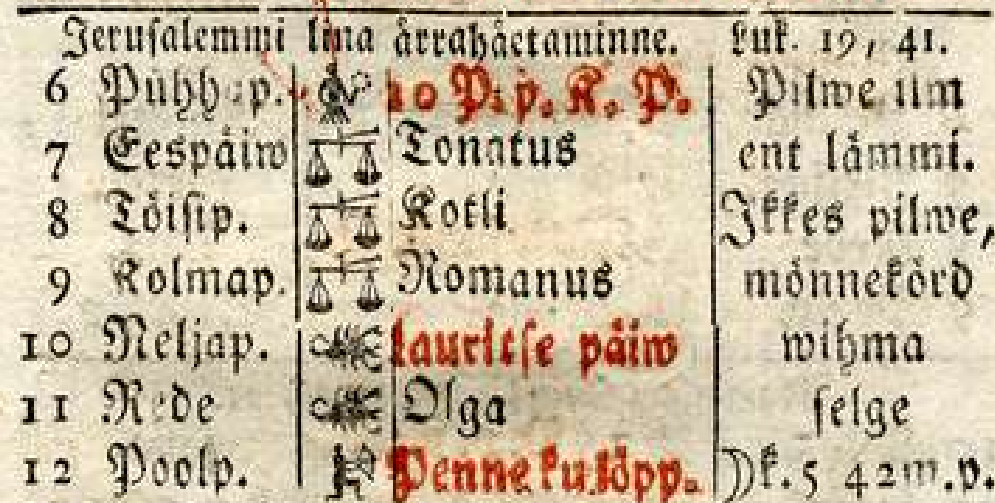 Jerusalemmi lina ärrahäetaminne. Luk. 19, 41.
6 Pühhap. 10 P. p. K. P. Pilwe
7 Eespäiw Tonatus ent lämmi.
8 Töisip. Kotli Ikkes pilwe,
9 Kolmap. Romanus mönnekörd
10 Neljap. Lauritse päiw wihma
11 Rede Olga selge
12 Poolp. Penne ku löpp. k. 5 42 m. p.